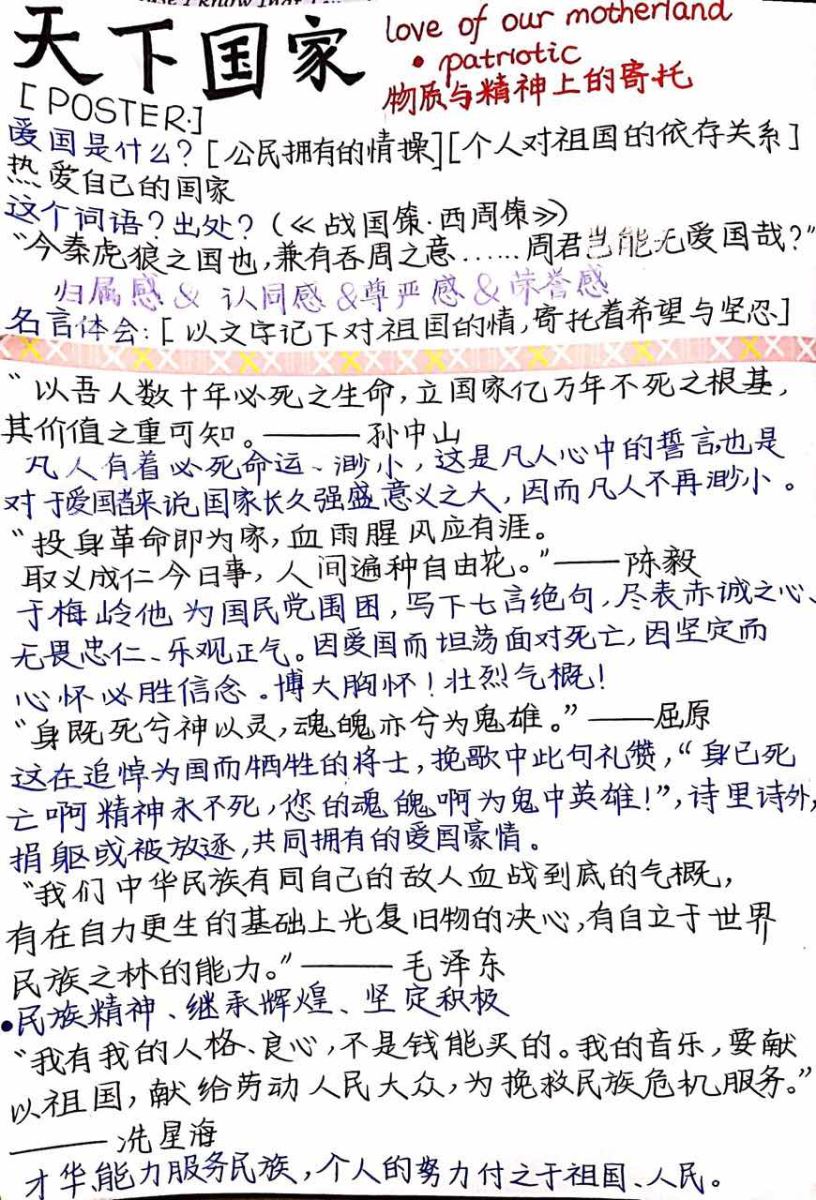 天下国家
love of our motherland
• patriotic
物质与精神上的寄托
[POSTER.]
爱国是什么？[公民拥有的情操][个人对祖国的依存关系]
热爱自己的国家
这个词语？出处？(《战国策·西周策》)
“今秦虎狼之国也，兼有吞周之意……周君岂能无爱国哉？”
归属感 & 认同感 & 尊严感 & 荣誉感
名言体会：[以文字记下对祖国的情，寄托着希望与坚忍]
“以吾人数十年必死之生命，立国家亿万年不死之根基，
其价值之重可知。——孙中山
凡人有着必死命运、渺小，这是凡人心中的誓言，也是
对于爱国者来说国家长久强盛意义之大，因而凡人不再渺小。
“投身革命即为家，血雨腥风应有涯。
取义成仁今日事，人间遍种自由花。”——陈毅
于梅岭他为国民党围困，写下七言绝句，尽表赤诚之心、
无畏忠仁、乐观正气。因爱国而坦荡面对死亡，因坚定而
心怀必胜信念。博大胸怀！壮烈气概！
“身既死兮神以灵，魂魄亦兮为鬼雄。”——屈原
这在追悼为国而牺牲的将士，挽歌中此句礼赞，“身已死
亡啊精神永不死，您的魂魄啊为鬼中英雄！”，诗里诗外，
捐躯或被放逐，共同拥有的爱国豪情。
“我们中华民族有同自己的敌人血战到底的气概，
有在自力更生的基础上光复旧物的决心，有自立于世界
民族之林的能力。”——毛泽东
•民族精神、继承辉煌、坚定积极
“我有我的人格、良心，不是钱能买的。我的音乐，要献
以祖国，献给劳动人民大众，为挽救民族危机服务。”
——冼星海
才华、能力服务民族，个人的努力付之于祖国、人民。